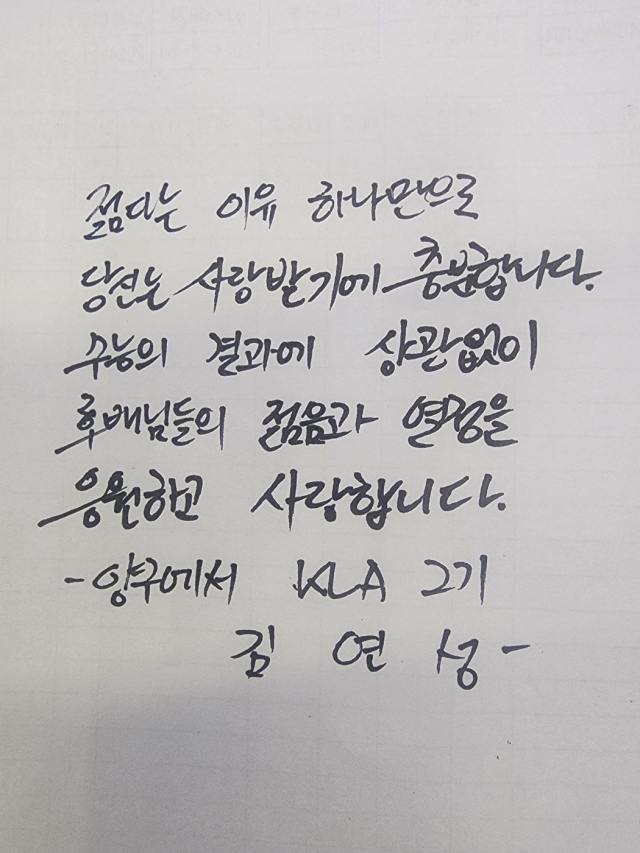 젊다는 이유 하나만으로
당신는 사랑받기에 충분합니다.
수능의 결과에 상관없이
후배님들의 젊음과 열정을
응원하고 사랑합니다.
-양구에서 KLA 2기
김 연 성-